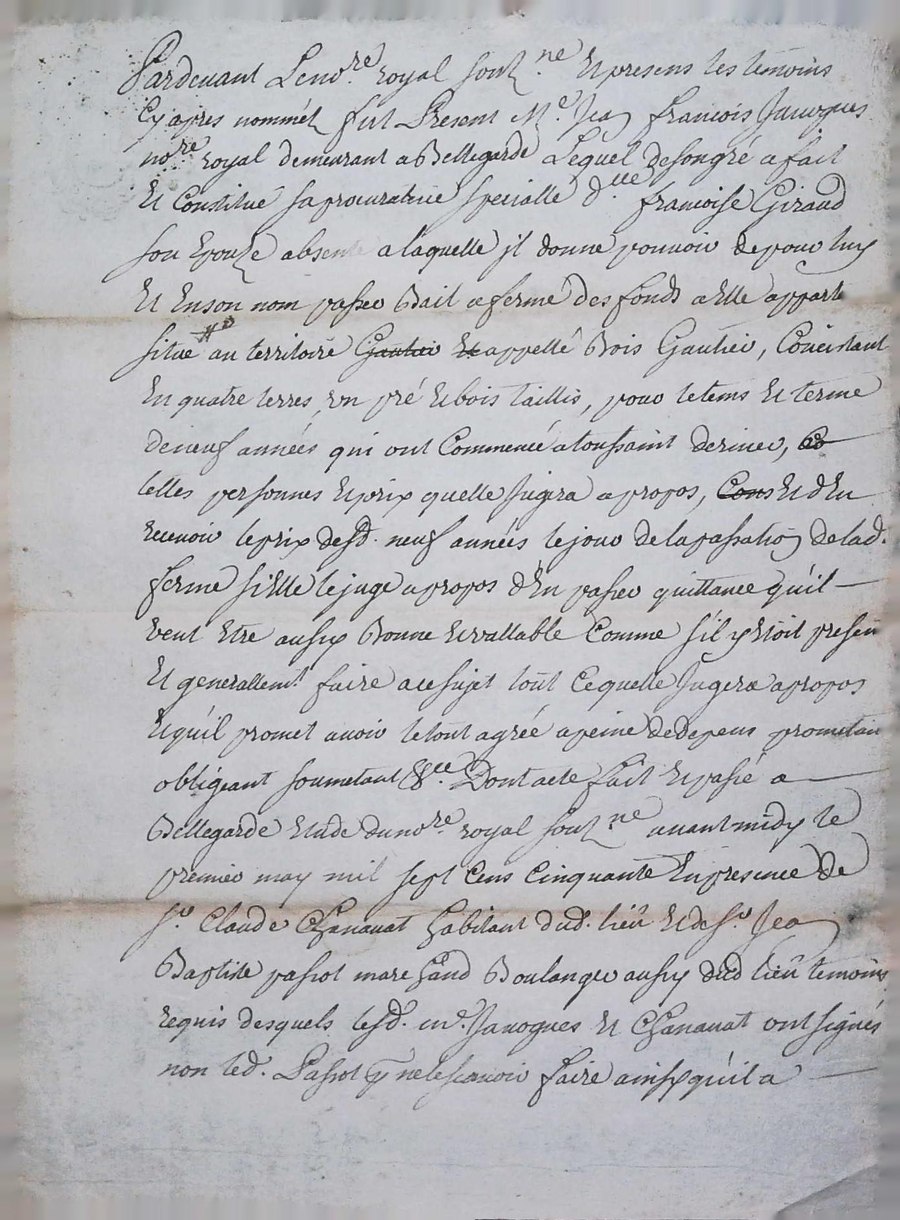 Pardevant Le no.re royal souz.ne Et presens les temoins
Cy apres nommés fut Present M.e Jean francois Javogues
no.re royal demeurant a Bellegarde Lequel de son gré a fait
Et Constitué sa procuratrice specialle d.lle francoise Giraud
son Epouze absente a laquelle jl donne pouvoir de pour luy
Et En son nom passer Bail a ferme des fonds a Elle appart
situé au territoire Gautier Et appellé Bois Gautier, Concistant
En quatre terres, un pré Et bois taillis, pour le tems Et terme
de neuf années qui ont Commencé a toussaint dernier, a
telles personnes Et prix quelle Jugera a propos, Cons Et d'En
recevoir le prix desd. neuf années le jour de la passation de lad.
ferme si Elle le juge a propos d'En passer quittance qu'il
veut Etre aussy Bonne Et vallable Comme s'il y Etoit presen
Et generallem.t faire a ce sujet tout ce quelle Jugera a propos
Et qu'il promet avoir le tout agréé a peine de depens prometan
obligeant soumetant &.ce Dont acte fait Et passé a
Bellegarde Etude du no.re royal souz.ne avant midy le
premier may mil sept Cens Cinquante En presence de
s.r Claude Chanavat habitant dud. lieu Et de s.r Jean
Baptiste passot marchand Boulanger aussy dud lieu temoins
requis desquels lesd. m.e Javogues Et Chanavat ont signés
non led. Passot p.r ne le scavoir faire ainsy qu'il a